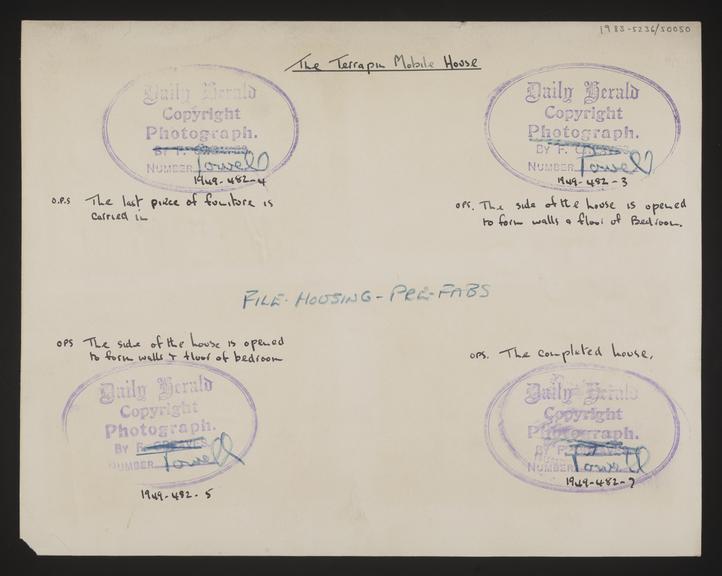 1983-5236/50050
The Terrapin Mobile House
Daily Herald
Copyright
Photograph.
BY F. GREAVES
NUMBER Towell
1949-482-4
O.P.S The last piece of furniture is
carried in
Daily Herald
Copyright
Photograph.
BY F. GREAVES
NUMBER Towell
1949-482-3
OPS. The side of the house is opened
to form walls & floor of Bedroom.
FILE-HOUSING-PRE-FABS
OPS The side of the house is opened
to form walls & floor of bedroom
Daily Herald
Copyright
Photograph.
BY F. GREAVES
NUMBER Towell
1949-482-5
OPS. The completed house.
Daily Herald
Copyright
Photograph.
BY F. GREAVES
NUMBER Towell
1949-482-7